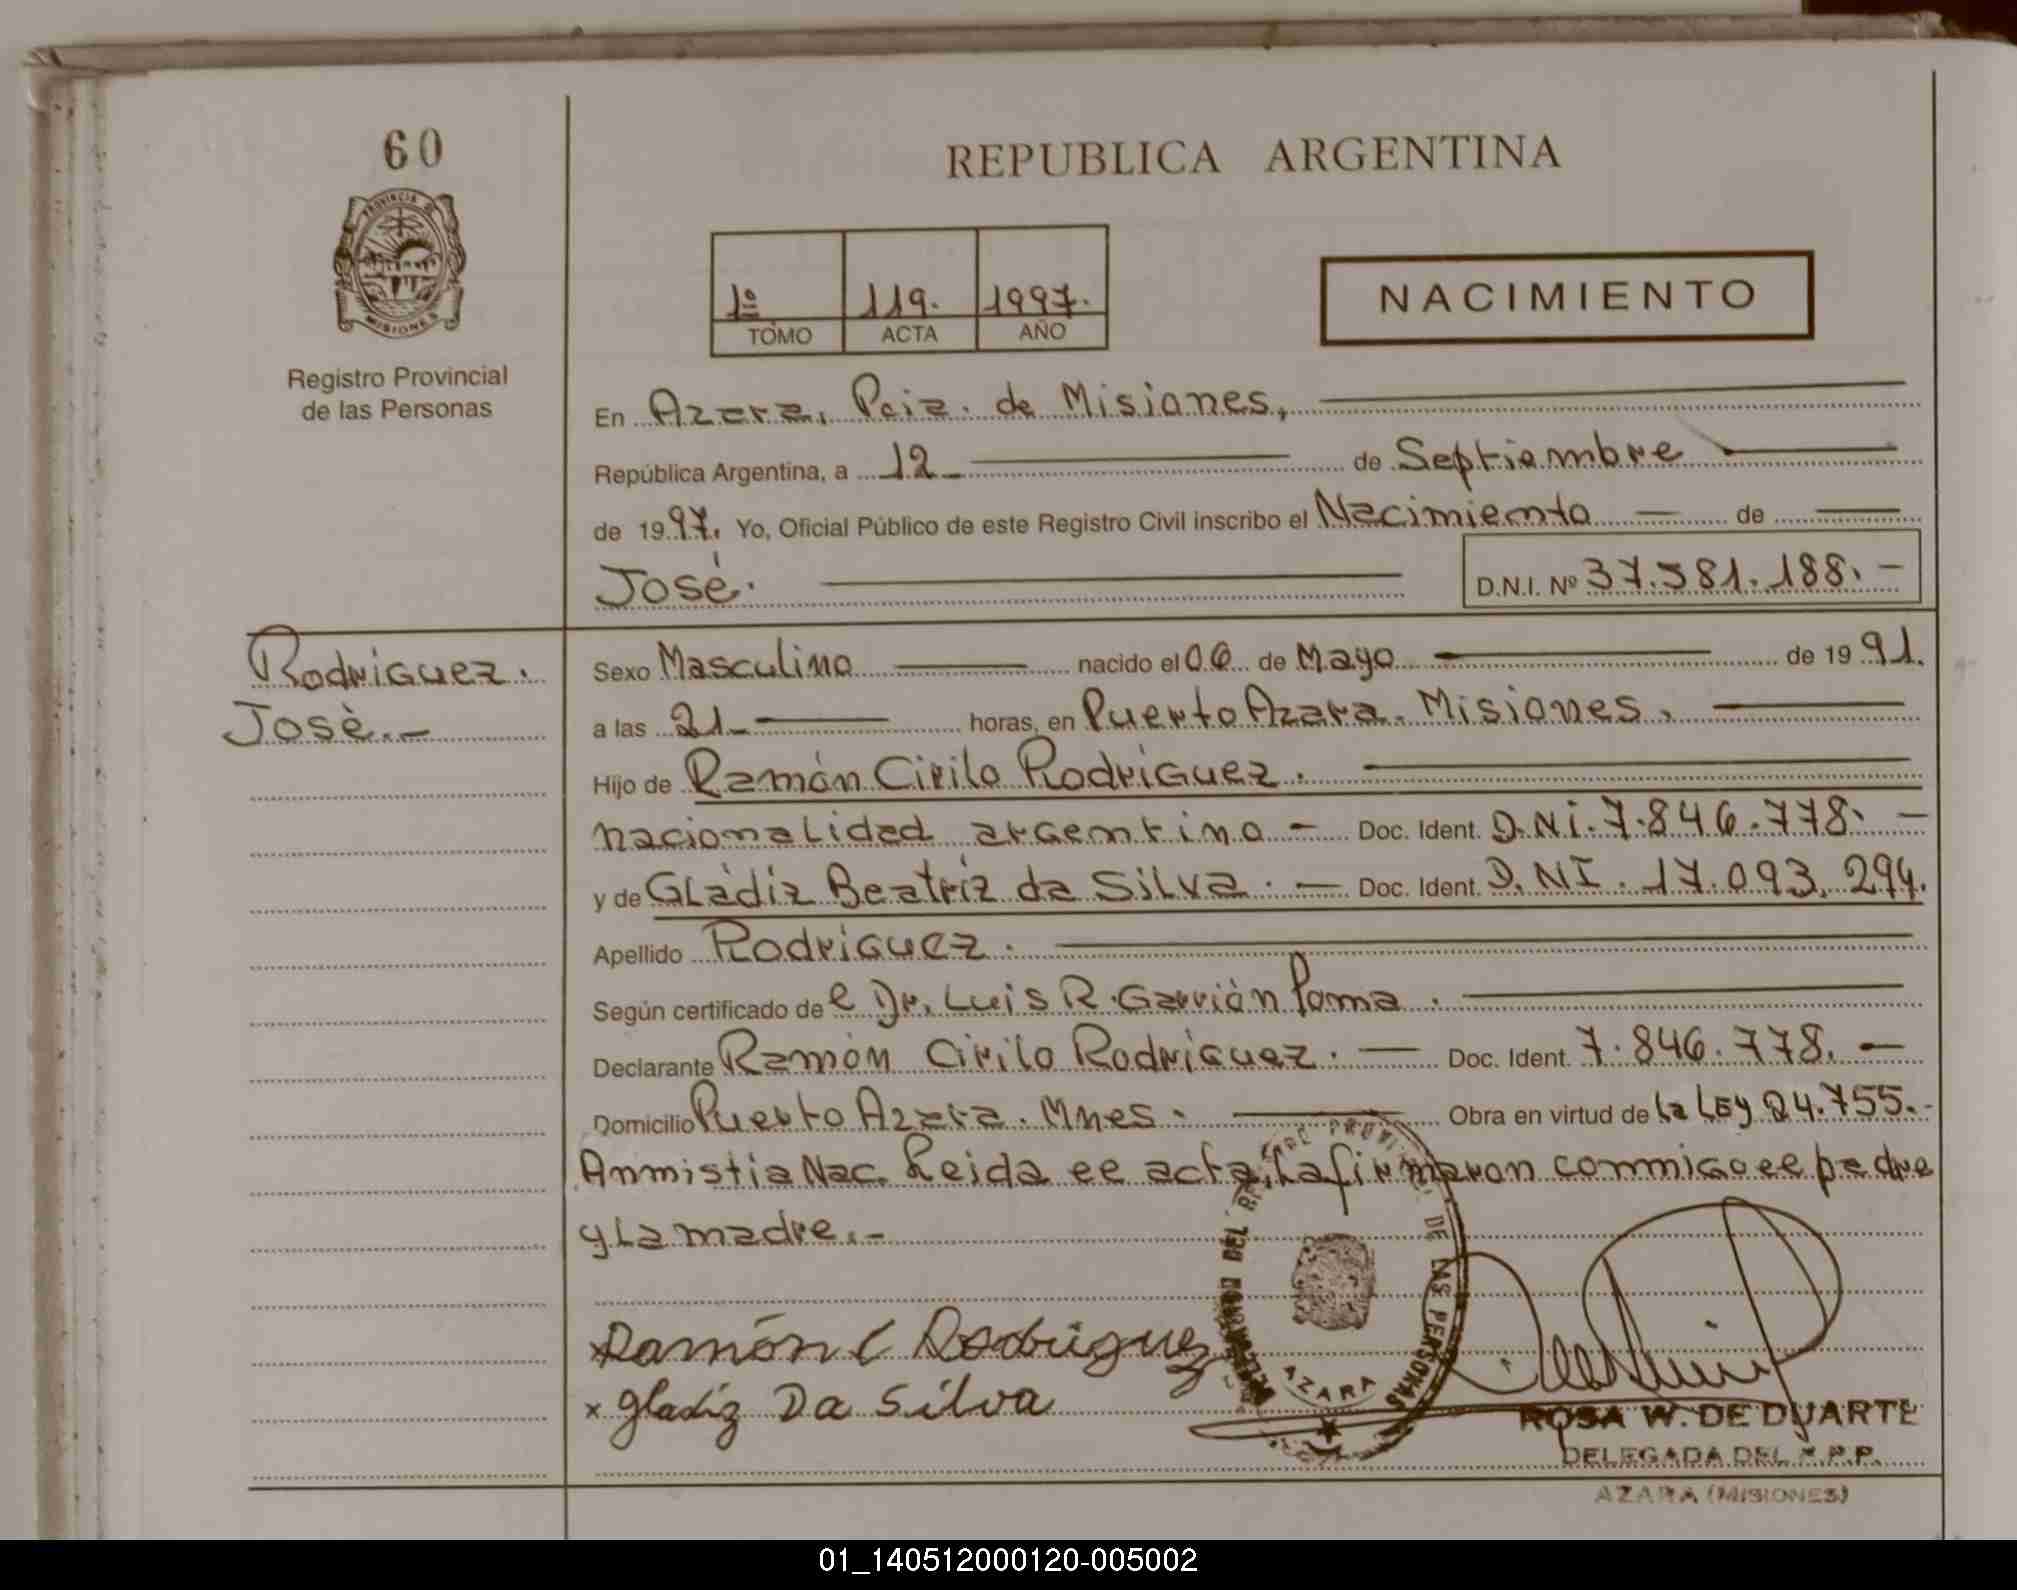 60
REPUBLICA ARGENTINA
PROVINCIA D
MISIONES
Registro Provincial
de las Personas
1º 119. 1997.
TOMO ACTA AÑO
NACIMIENTO
En Azara, Pcia. de Misiones,
República Argentina, a 12 de Septiembre
de 1997. Yo, Oficial Público de este Registro Civil inscribo el Nacimiento — de —
José. D.N.I. Nº 37.581.188. -
Rodriguez.
José.-
Sexo Masculino nacido el 06 de Mayo de 1991.
a las 21 horas, en Puerto Azara. Misiones.
Hijo de Ramón Cirilo Rodriguez.
nacionalidad argentino - Doc. Ident. D.NI. 7.846.778. -
y de Gládiz Beatríz da Silva. - Doc. Ident. D.NI. 17.093.294.
Apellido Rodríguez.
Según certificado de el Dr. Luis R. Garrión Poma.
Declarante Ramón Cirilo Rodríguez. - Doc. Ident. 7.846.778. -
Domicilio Puerto Azara. Mnes. Obra en virtud de la Ley 24.755.-
Anmistia Nac. Leida el acta, la firmaron conmigo el padre
y la madre.-
x Ramón C Rodriguez
x Gladiz Da Silva
DELEGACION DEL REG PROVINCIAL DE LAS PERSONAS
AZARA
ROSA W. DE DUARTE
DELEGADA DEL R.P.P.
AZARA (MISIONES)
01_140512000120-005002